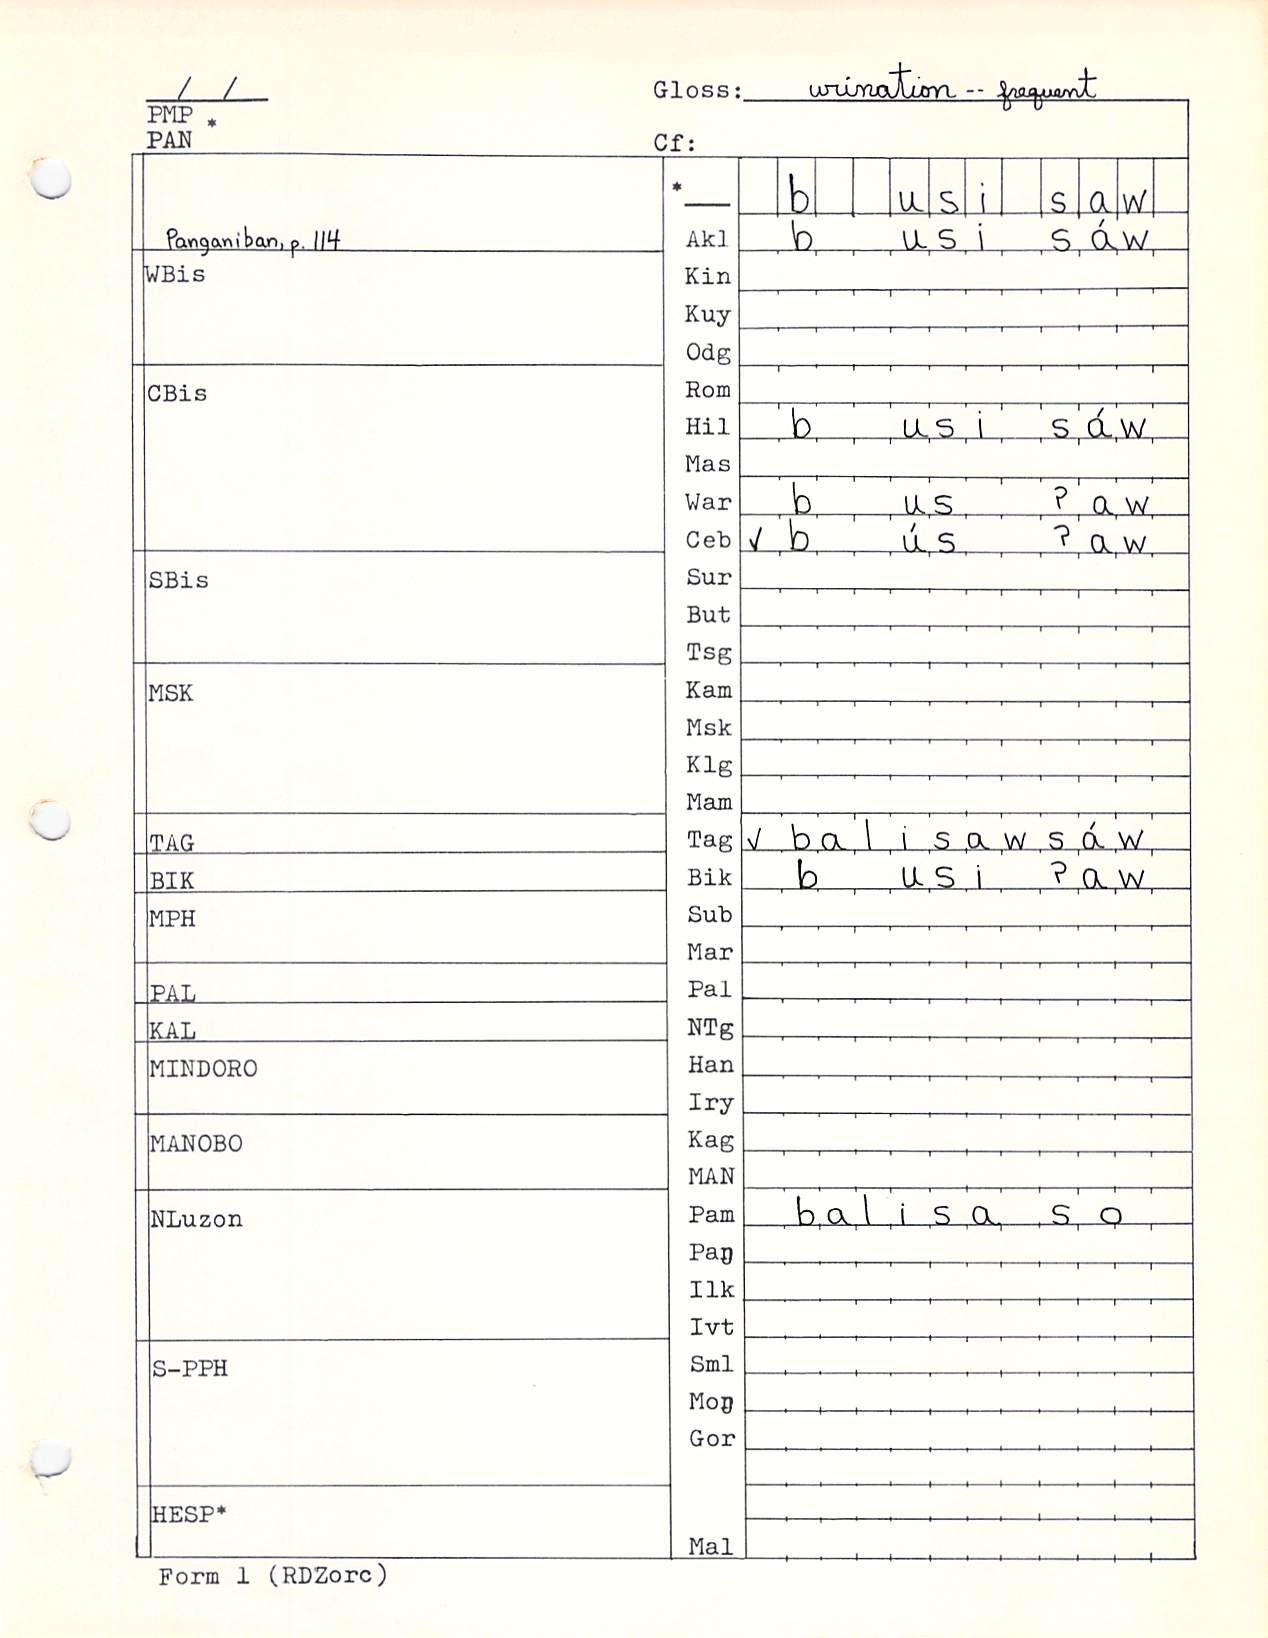 / /
Gloss: urination -- frequent
PMP *
PAN
Cf:
* b u s i s a w
Panganiban, p. 114
Akl b u s i s á w
WBis
Kin
Kuy
Odg
CBis
Rom
Hil b u s i s á w
Mas
War b u s ? a w
Ceb ✓ b ú s ? a w
SBis
Sur
But
Tsg
MSK
Kam
Msk
Klg
Mam
TAG
Tag ✓ b a l i s a w s á w
BIK
Bik b u s i ? a w
MPH
Sub
Mar
PAL
Pal
KAL
NTg
MINDORO
Han
Iry
MANOBO
Kag
MAN
NLuzon
Pam b a l i s a s o
Paŋ
Ilk
Ivt
S-PPH
Sml
Moŋ
Gor
HESP*
Mal
Form 1 (RDZorc)